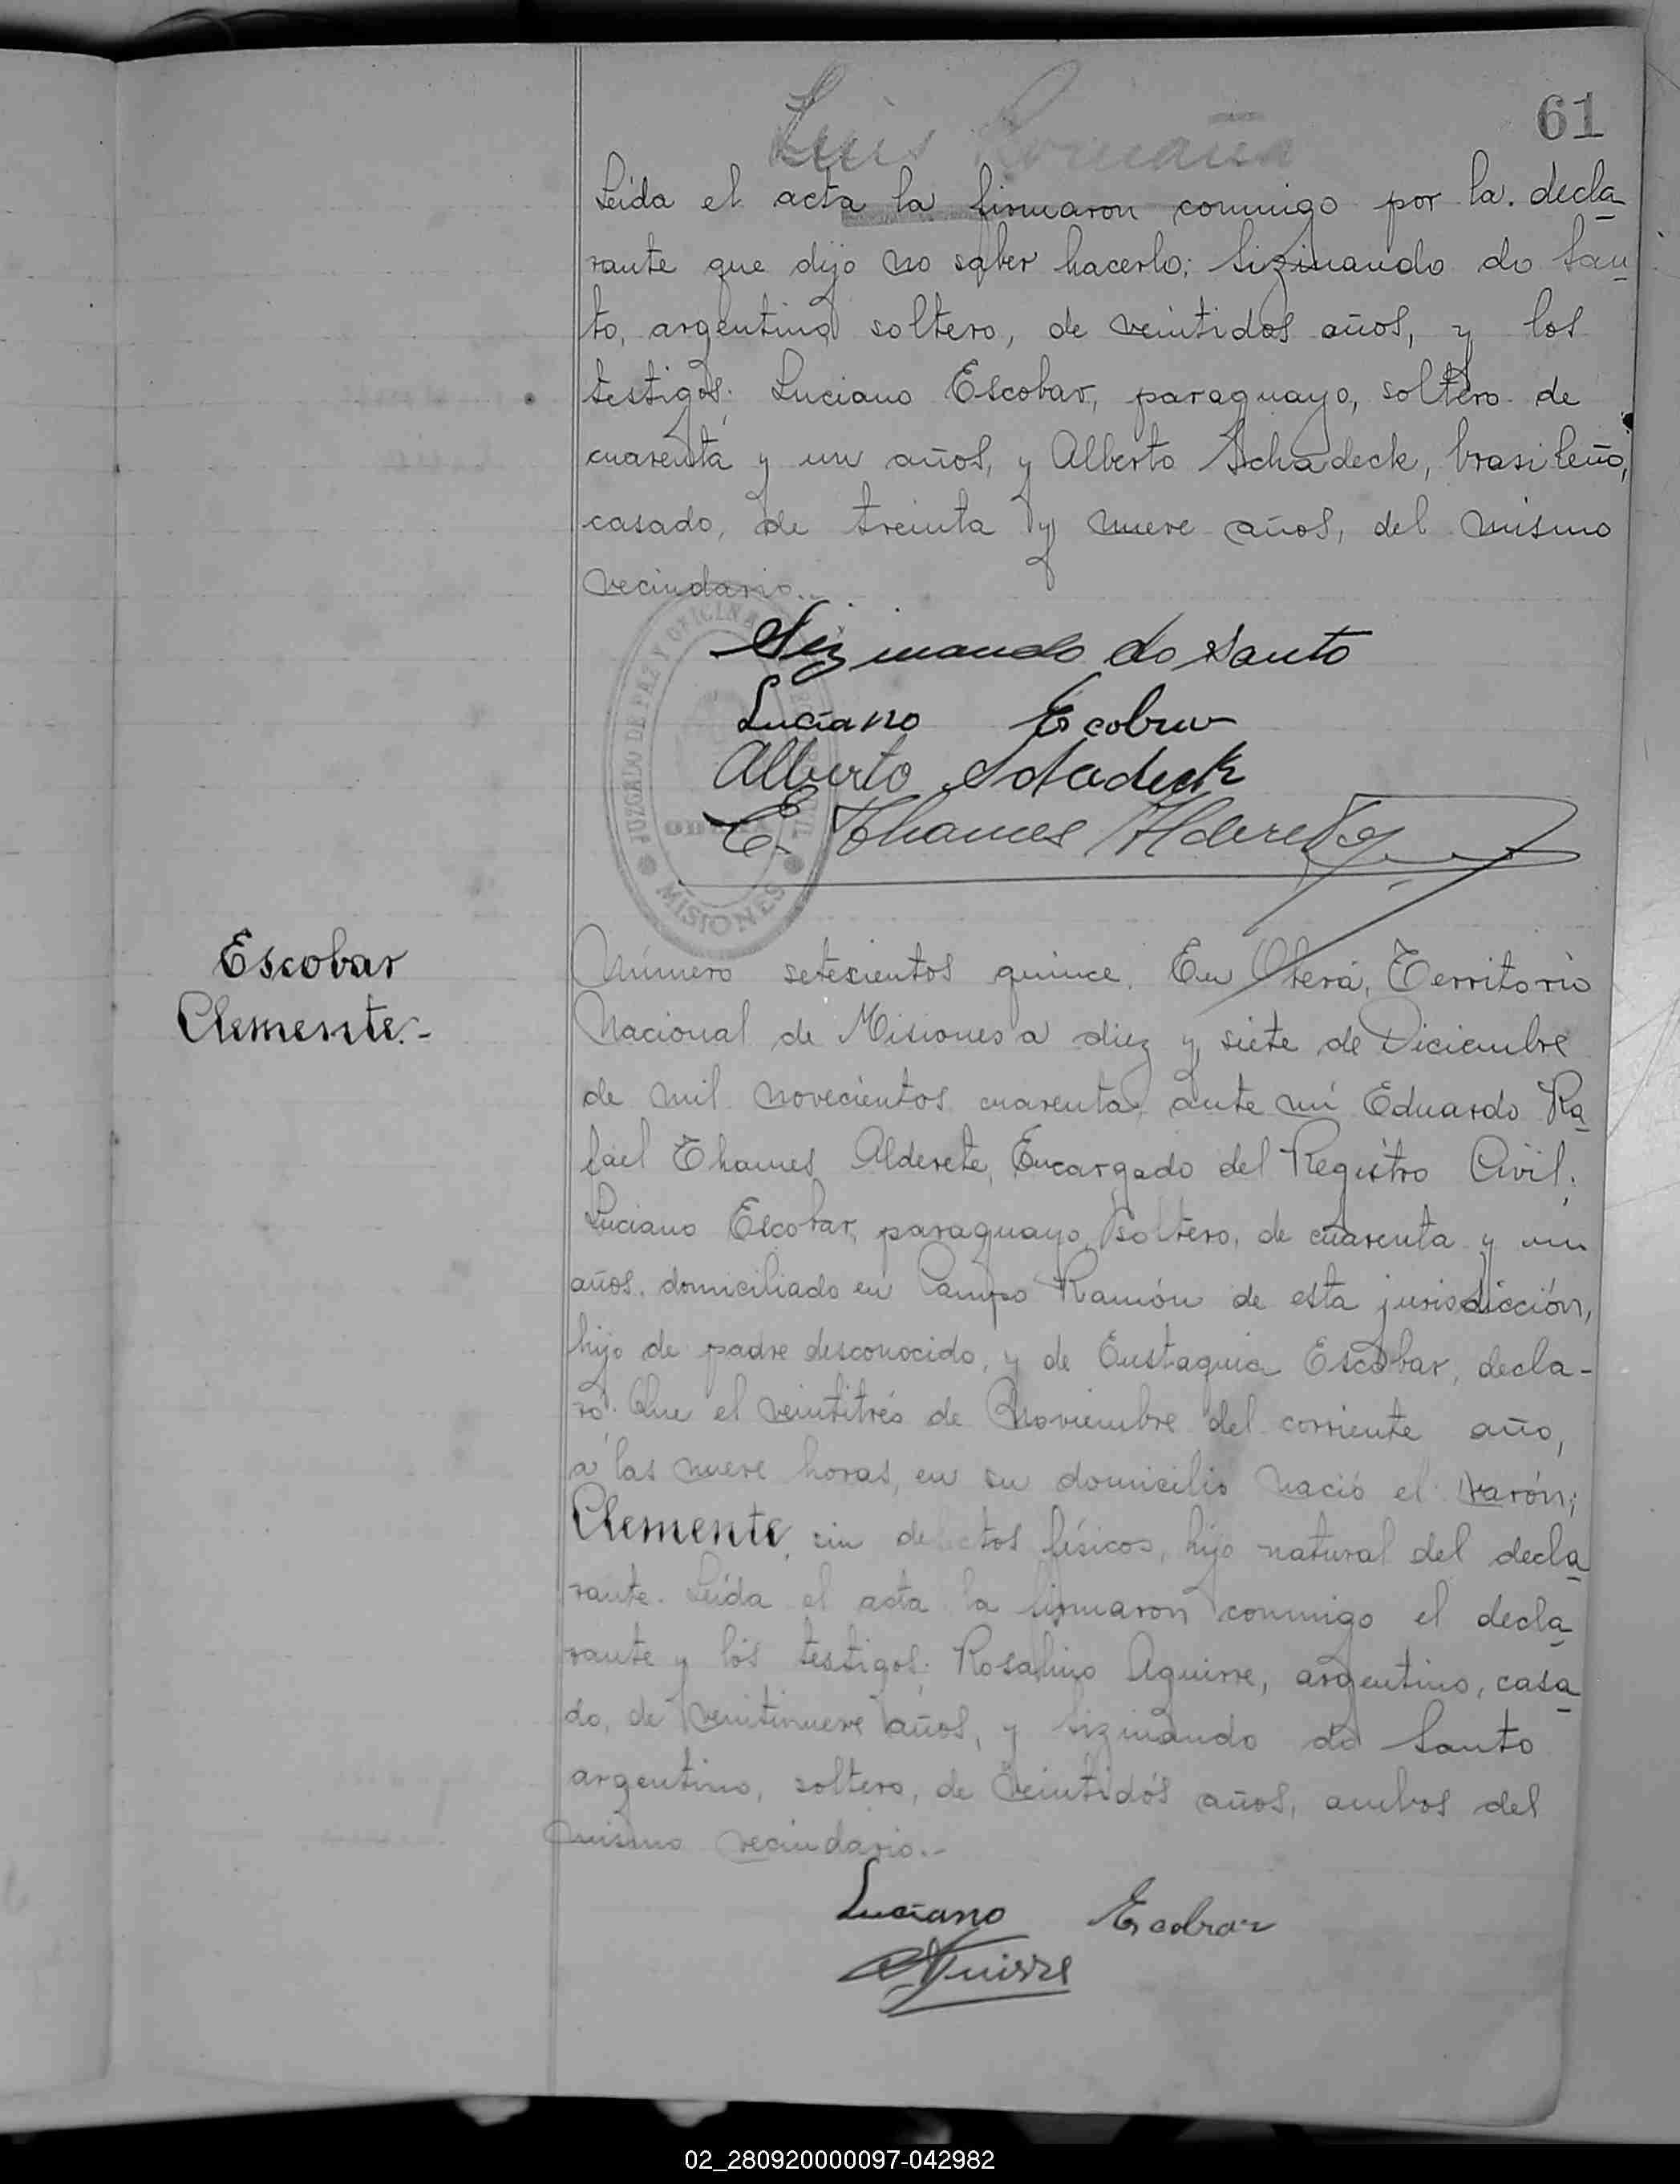 61
Luis Romaña
Leída el acta la firmaron conmigo por la. decla
rante que dijo no saber hacerlo: Sizinando do San
to, argentino soltero, de veintidos años, y los
testigos: Luciano Escobar, paraguayo, soltero de
cuarenta y un años, y Alberto Schadeck, brasileño,
casado, de treinta y nueve años, del mismo
vecindario..
Sizinando do Santo
Luciano Escobar
Alberto Schadeck
E. Thames Alderete
JUZGADO DE PAZ Y OFICINA
OBERÁ
MISIONES
Escobar
Clemente.-
Número setecientos quince. En Oberá, Territorio
Nacional de Misiones a diez y siete de Diciembre
de mil novecientos cuarenta, ante mí Eduardo Ra
fael Thames Alderete, Encargado del Registro Civil;
Luciano Escobar, paraguayo, soltero, de cuarenta y un
años, domiciliado en Campo Ramón de esta jurisdicción,
hijo de padre desconocido, y de Eustaquia Escobar, decla-
ró: Que el veintitrés de Noviembre del corriente año,
a las nueve horas, en su domicilio nació el varón;
Clemente, sin defectos físicos, hijo natural del decla
rante. Leída el acta la firmaron conmigo el decla
rante y los testigos: Rosalino Aguirre, argentino, casa
do, de veintinueve años, y Sizinando do Santo
argentino, soltero, de veintidós años, ambos del
mismo vecindario.-
Luciano Escobar
Aguirre
02_280920000097-042982